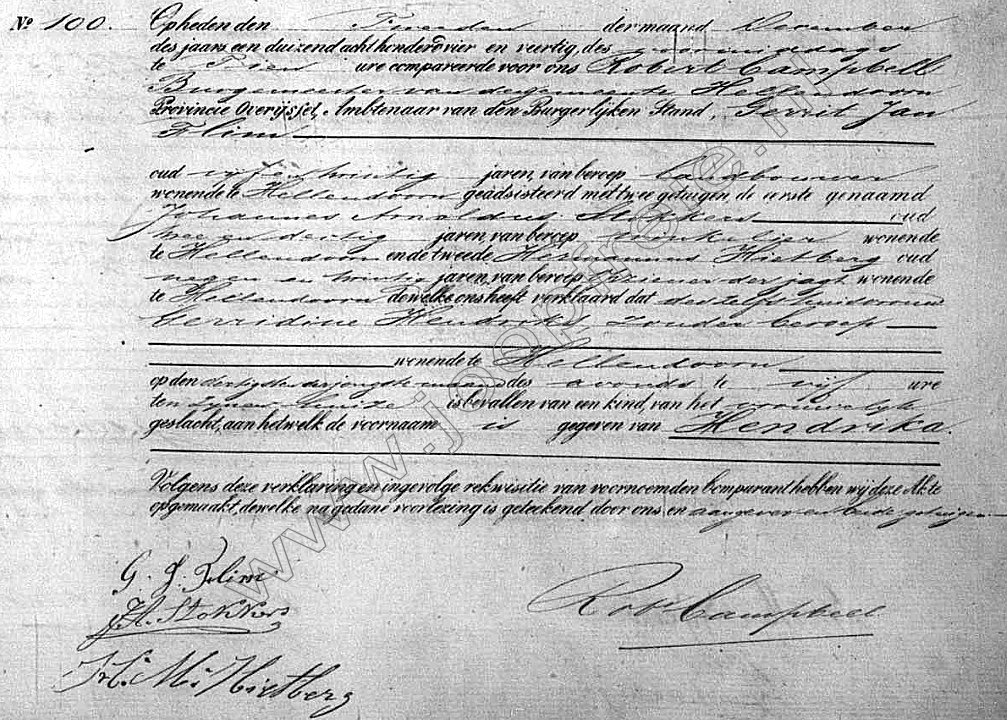 Nº 100. Opheden den Tweeden der maand December
des jaars een duizend acht honderd vier en veertig, des voormiddags
te Tien ure compareerde voor ons Robert Campbell
Burgemeester van de gemeente Hellendoorn
Provincie Overijssel, Ambtenaar van den Burgerlijken Stand, Gerrit Jan
Flim
oud vijf en twintig jaren, van beroep landbouwer
wonende te Hellendoorn geadsisteerd met twee getuigen, de eerste genaamd
Johannes Arnoldus Stokkers oud
twee en dertig jaren, van beroep winkelier wonende
te Hellendoorn en de tweede Hermannus Hietberg oud
negen en twintig jaren, van beroep der jagt wonende
te Hellendoorn dewelke ons heeft verklaard dat deszelfs huisvrouw
Gerridina Hendriks, zonder beroep
wonende te Hellendoorn
op den dertigsten der des avonds te vijf ure
ten zijnen huize is bevallen van een kind, van het vrouwelijk
geslacht, aan hetwelk de voornaam is gegeven van Hendrika.
Volgens deze verklaring en ingevolge rekwisitie van voornoemden Comparant hebben wij deze Akte
opgemaakt, dewelke na gedane voorlezing is geteekend door ons en aangever en beide getuigen
G. J. Flim
J A Stokkers
Robt Campbell
H. M. Hietberg